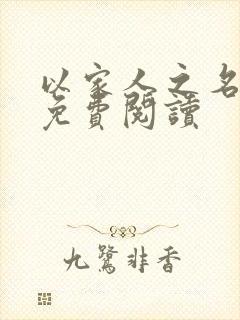 以家人之名
免費閱讀
九鷺非香